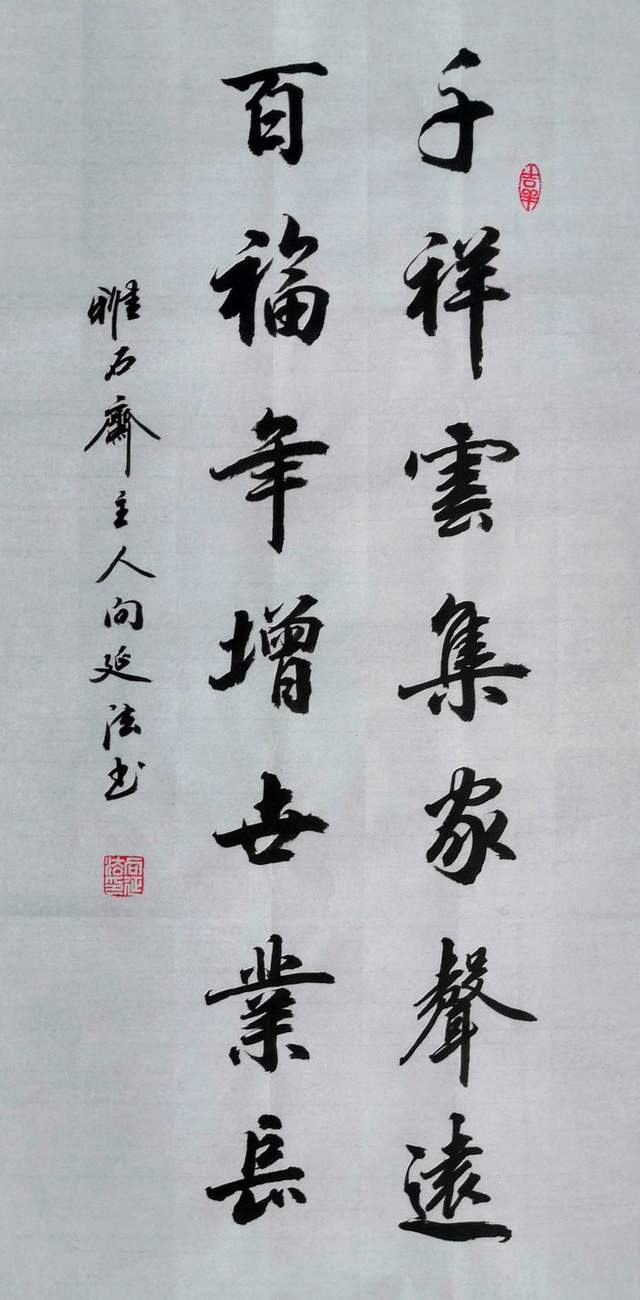 千祥雲集家聲遠
百福年增世業長
雅石齋主人向延法书
吉羊
向延法印